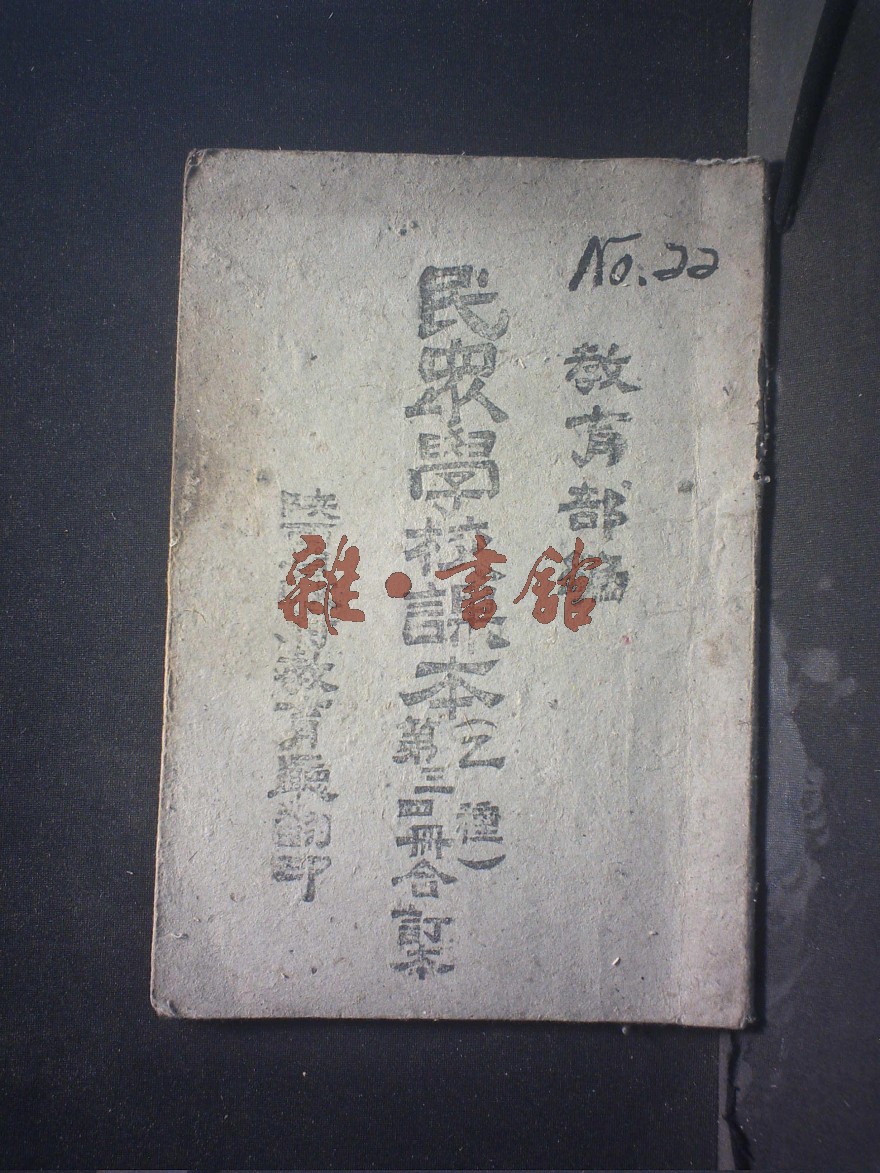 No.22
教育部編
民眾學校課本（乙種）
第三四冊合訂本
教育
印
雜·書館